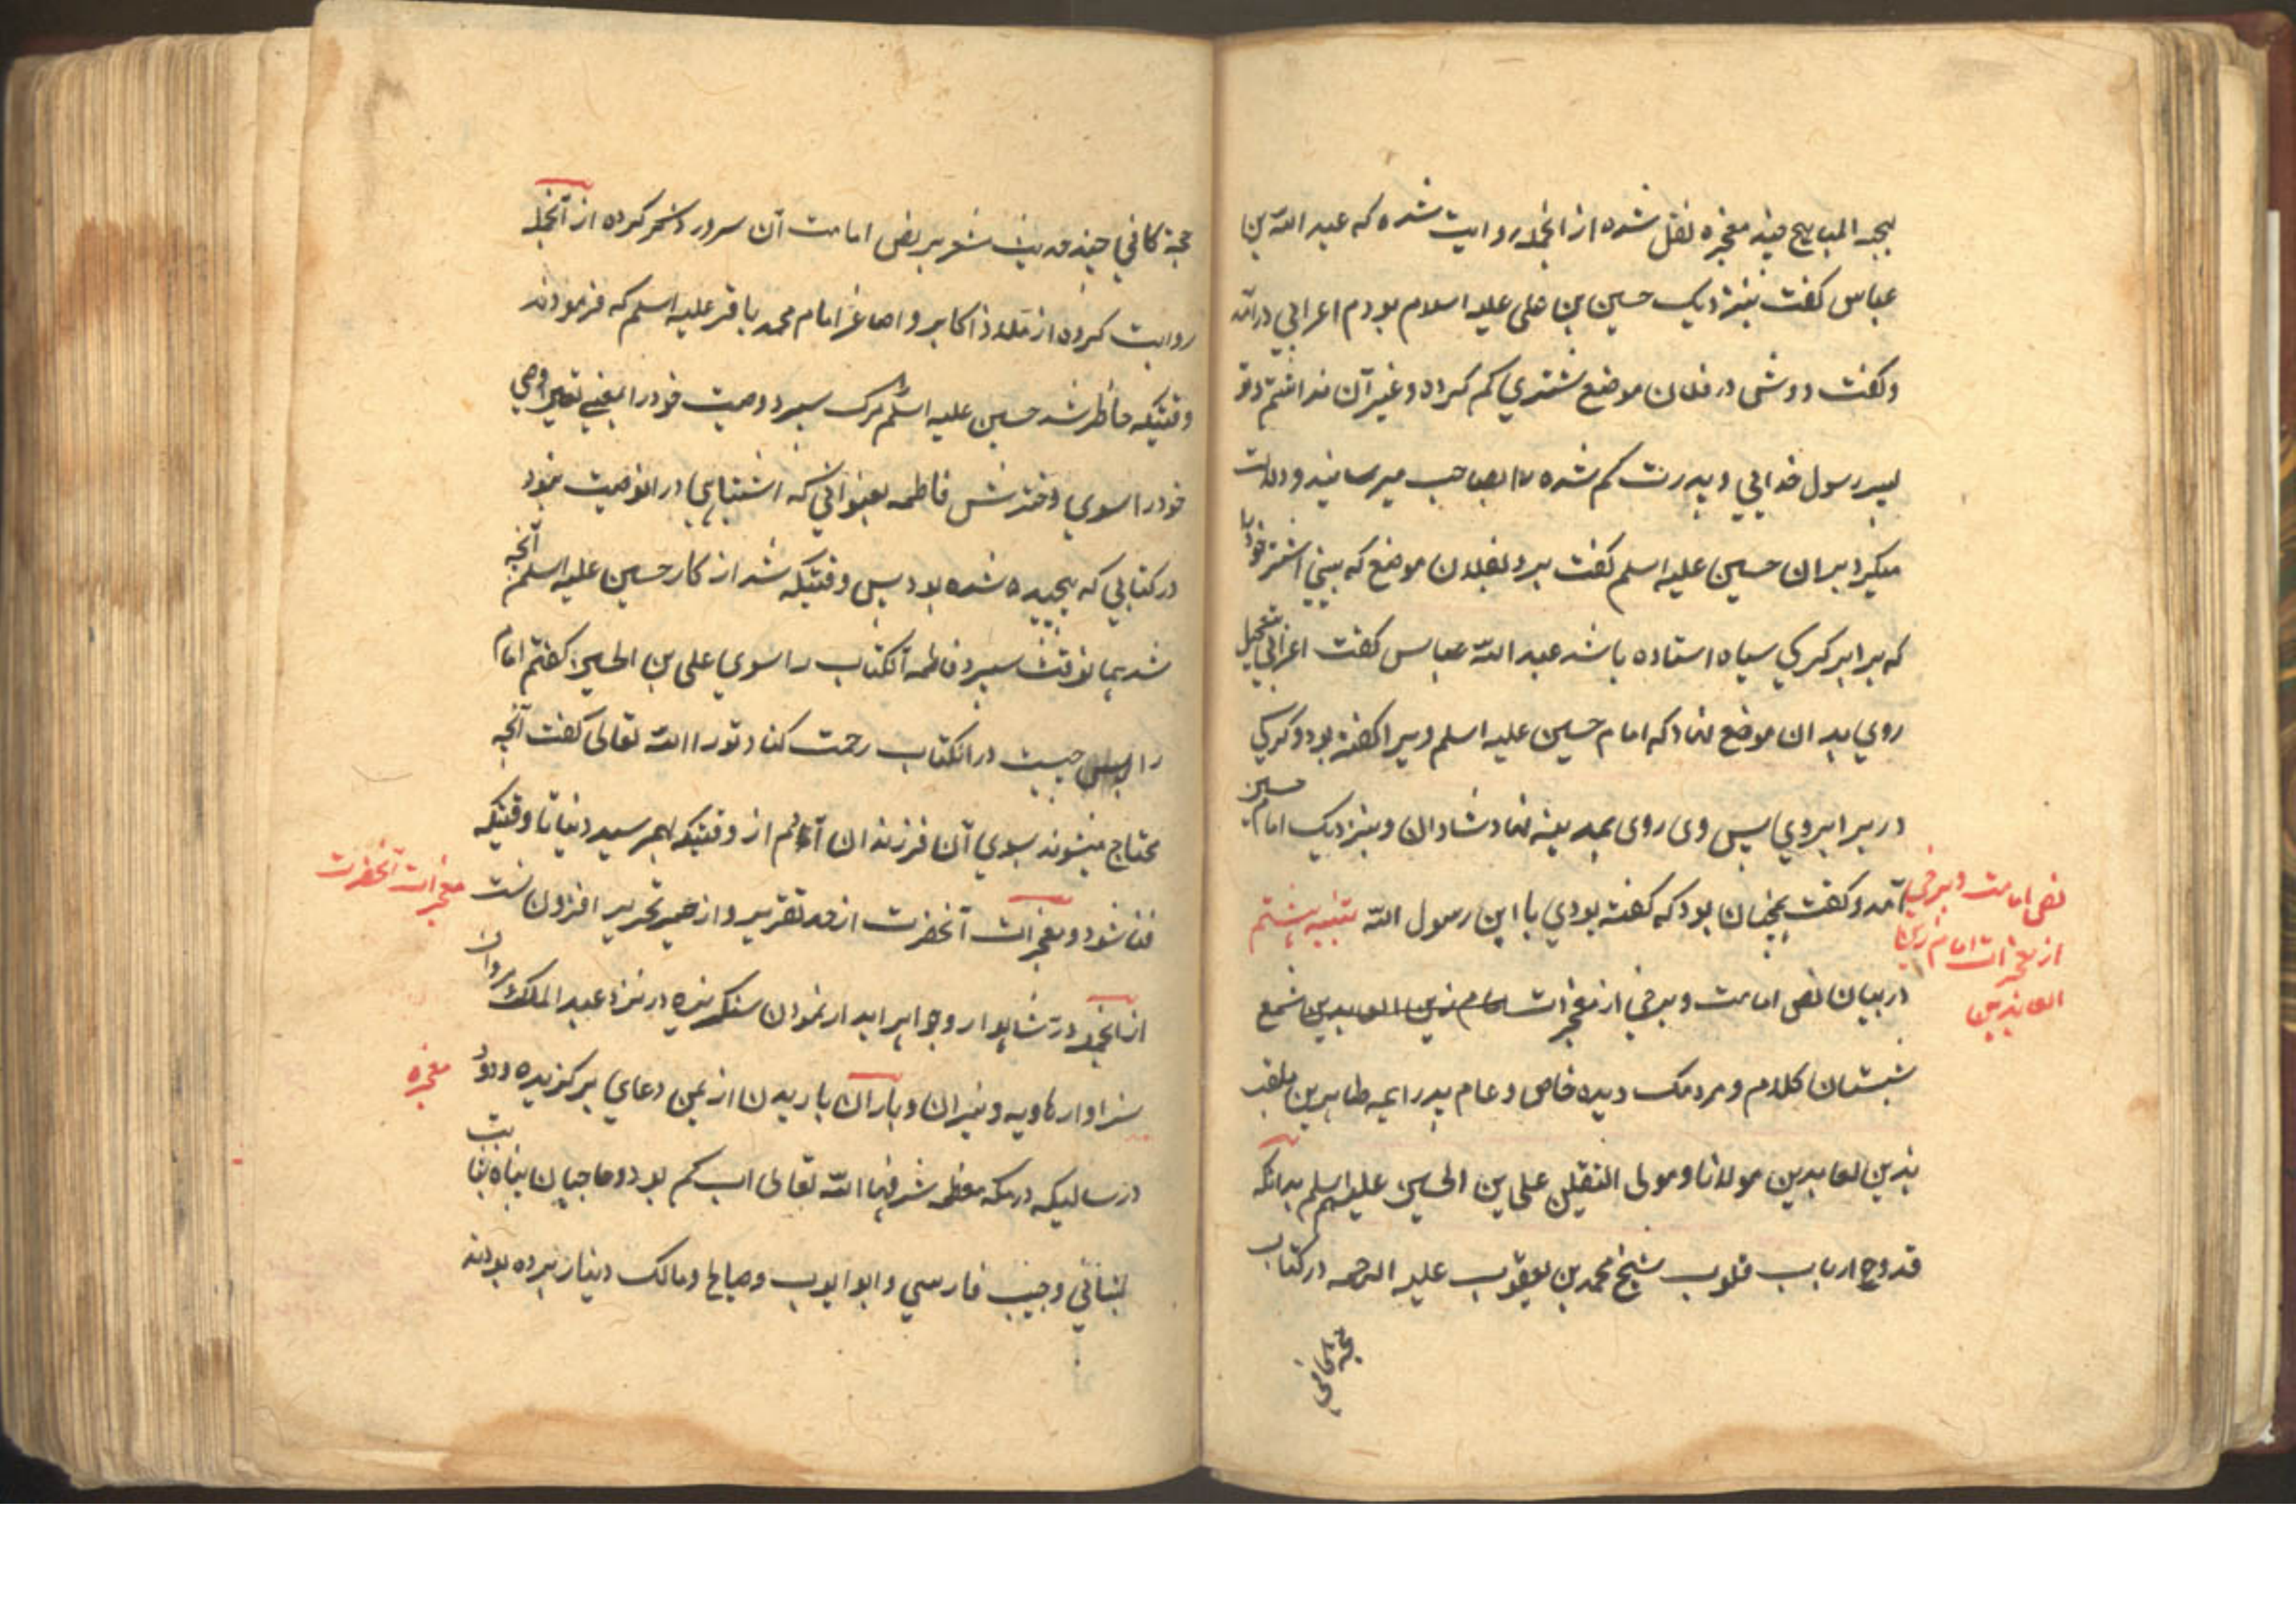 بهجه المباهج چند معجزه نقل شده از انجمله روایت شده که عبد الله بن
عباس گفت بنزدیک حسین بن علی علیه السلام بودم اعرابی درآمد
وگفت دوش در فلان موضع شتری کم کرده وغیر آن نداشتم وتو
پسر رسول خدایی و پدرت کم شده را بصاحب میرسانید ودلالت
میکرد بران حسین علیه اسلم گفت برو بفلان موضع که بینی اشتر خود را
که برابر کرکی سیاه استاده باشد عبد الله عباس گفت اعرابی بتعجیل
روی بدان موضع نهاد که امام حسین علیه اسلم ویرا گفته بود وکرکی
در برابر وی پس وی روی بمدینه نهاد شادان وبنزدیک امام حسین
آمد وگفت همچنان بود که گفته بودی یا ابن رسول الله تنبیه هشتم
در بیان نص امامت وبرخی از معجزات امام زین العابدین شمع
شبستان کلام ومردمک دیده خاص وعام پدر ایمه طاهرین ملقب
بزین العابدین مولانا ومولی الثقلین علی بن الحسین علیه اسلم بدانکه
قدوه ارباب قلوب شیخ محمد بن یعقوب علیه الرحمه در کتاب
نص امامت وبرخی
از معجزات امام زین
العابدین
حجة کافی
حجة کافی چند حدیث مشعر بر نص امامت آن سرور ذکر کرده از آنجمله
روایت کرده از ملاذ اکابر واصاغر امام محمد باقر علیه اسلم که فرمودند
وقتیکه حاظر شد حسین علیه اسلم را مرک سپرد وصیت خود را یعنی تعیین وصی
خود را سوی دخترش فاطمه بعنوانی که اشتباهی در انوصیت نبود
در کتابی که پیچیده شده بود پس وقتیکه شد از کار حسین علیه اسلم آنچه
شد همانوقت سپرد فاطمه آنکتاب را سوی علی بن الحسین گفتم امام
را چیست در انکتاب رحمت کناد تو را الله تعالی گفت آنچه
محتاج میشوند بسوی آن فرزندان آدم از وقتیکه بهم رسید دنیا تا وقتیکه
فنا شود ومعجزات آنحضرت از حد تقریر واز حیز تحریر افزون است
از انجمله در شاهوار وجواهر ابدار نمودن سنکریزه در نزد عبد الملک مروان
سزاوار هاویه ونیران وباران باریدن از یمن دعای برکزیده ودود
در سالیکه در مکه معظمه شرفها الله تعالی اب کم بود وحاجیان پناه ثابت
بنانی وحبیب فارسی وابو ایوب وصالح ومالک دینار برده بودند
معجزات آنحضرت
معجزه